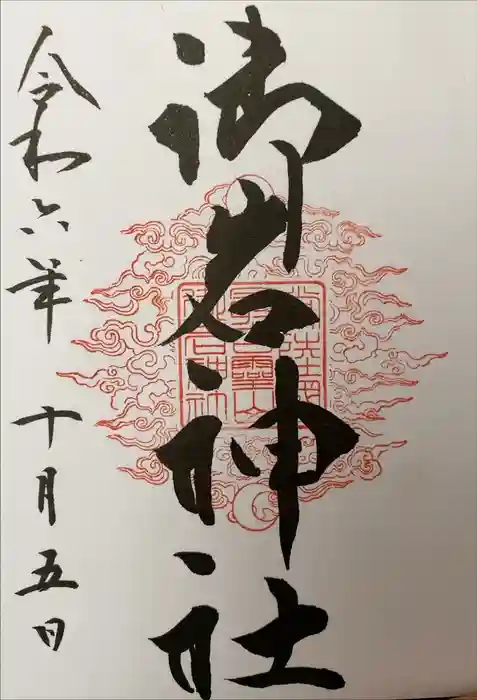 御岩神社
令和六年 十月五日